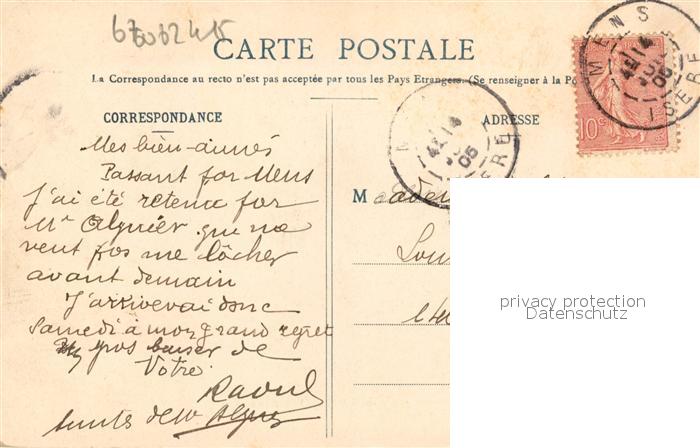 67
6062415
CARTE POSTALE
La Correspondance au recto n'est pas acceptée par tous les Pays Etrangers. (Se renseigner à la Po
CORRESPONDANCE
ADRESSE
MENS
ISERE
10c
ISERE
Mes bien-aimés
Passant par Mens
J'ai été retenu par
Mr Alguier qui ne
veut pas me lâcher
avant demain
J'arriverai donc
Samedi à mon grand regret
gros baiser de
Votre
Raoul
M
privacy protection
Datenschutz